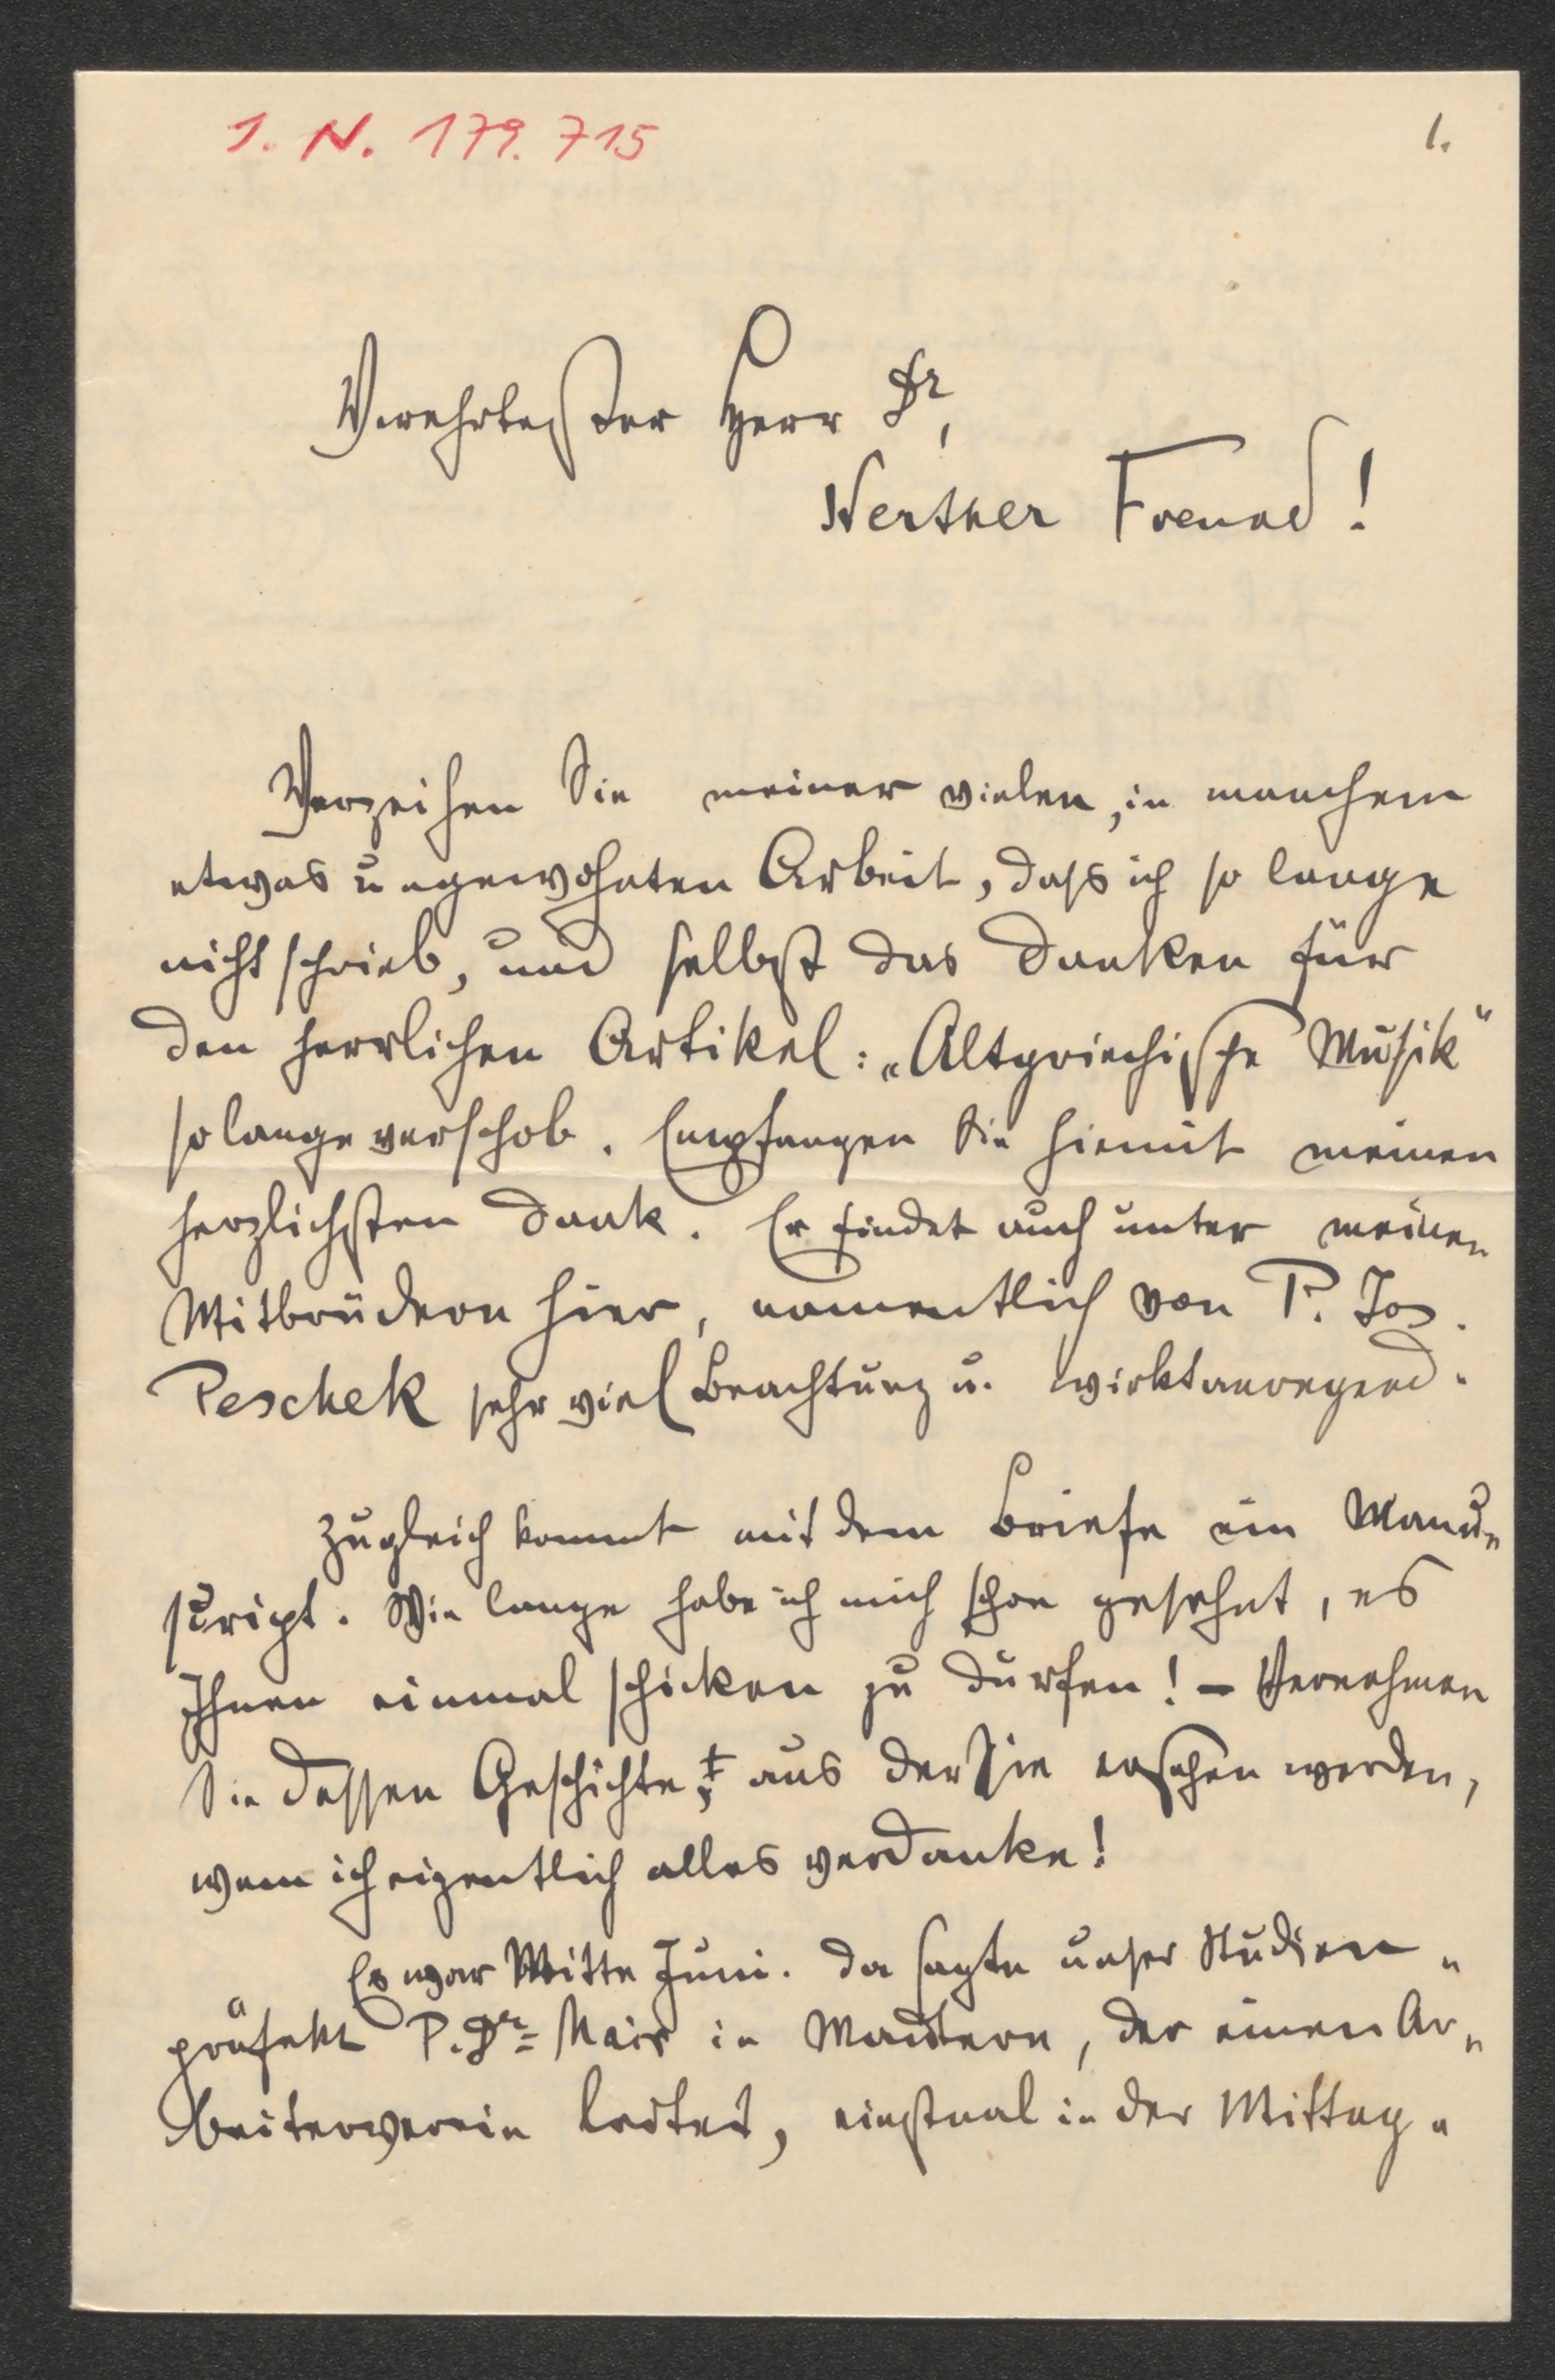 I. N. 179.715
1.
Verehrtester Herr Dr,
Werther Freund!
Verzeihen Sie meiner vielen, in manchem
etwas ungewohnten Arbeit, dass ich so lange
nicht schrieb, und selbst das Danken für
den herrlichen Artikel: „Altgriechische Musik"
so lange verschob. Empfangen Sie hiemit meinen
herzlichsten Dank. Er findet auch unter meinen
Mitbrüdern hier, namentlich von P. Jos.
Peschek sehr viel Beachtung u. wirkt anregend.
Zugleich kommt mit dem Briefe ein Manu„
script. Wie lange habe ich mich schon gesehnt, es
Ihnen einmal schicken zu dürfen! – Vernehmen
Sie dessen Geschichte, aus der Sie ersehen werden,
wem ich eigentlich alles verdanke!
Es war Mitte Juni. Da sagte unser Studien„
präfekt P. Dr= Mair in Mautern, der einen Ar„
beiterverein leitet, einstmal in der Mittag„